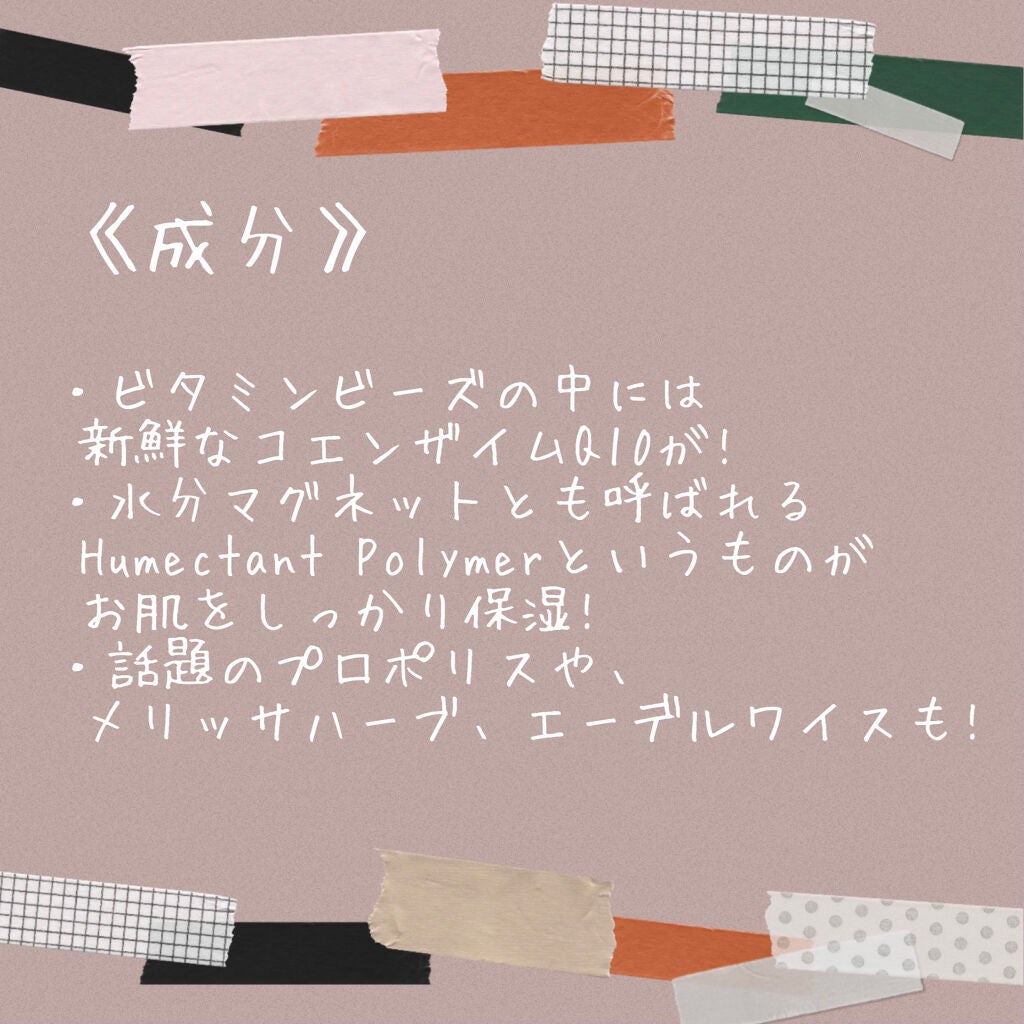 《成分》
・ビタミンビーズの中には
新鮮なコエンザイムQ10が!
・水分マグネットとも呼ばれる
Humectant Polymerというものが
お肌をしっかり保湿!
・話題のプロポリスや、
メリッサハーブ、エーデルワイスも!